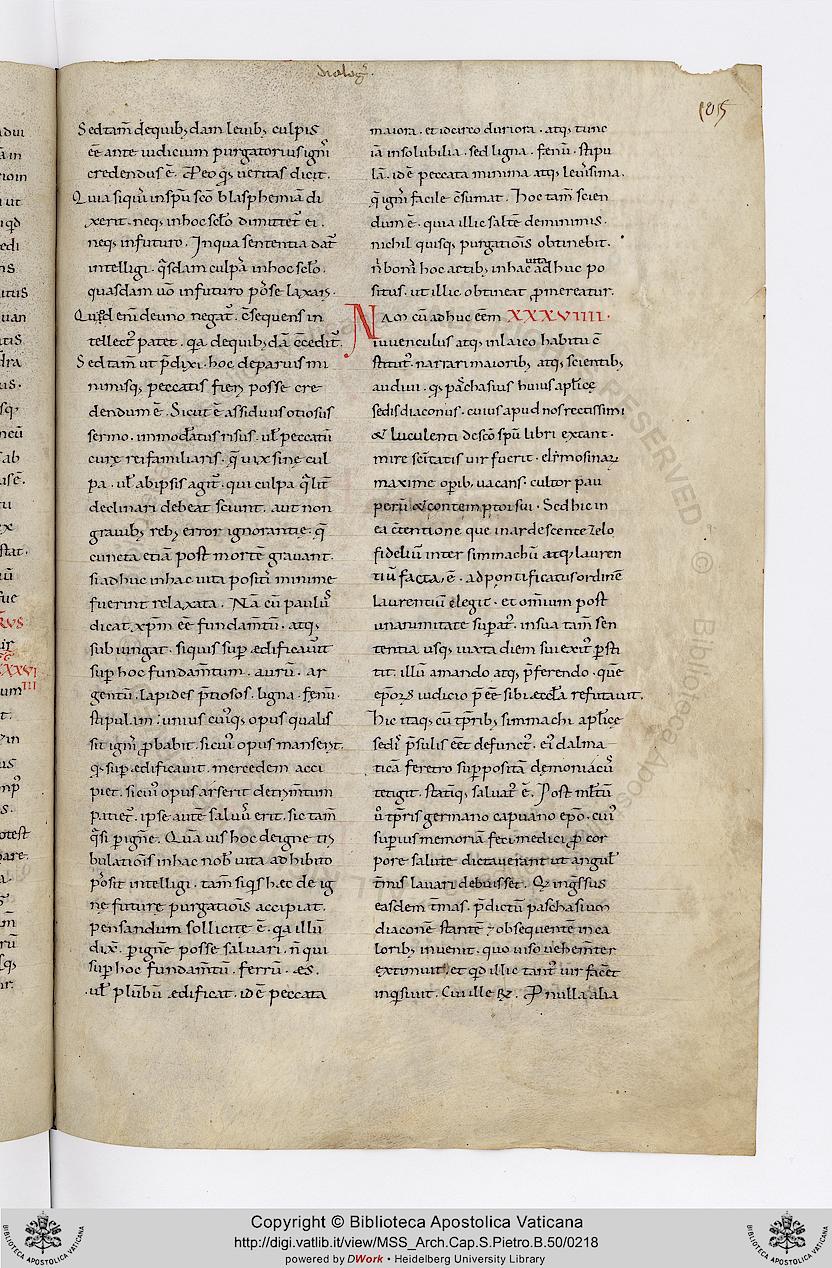 dialog̃.
105
Sed tam̃ de quib; dam leuib; culpis
eē ante iudicium purgatorius ignis
credendus ē. Pro eo q; ueritas dicit.
Quia siquis inspũ sc̃o blasphemiã di
xerit. neq; in hoc sclo dimittet̃ ei.
neq; infuturo. In qua sententia dat̃
intelligi. q̃sdam culpã inhoc sclo.
quasdam uõ infuturo posse laxari.
Quod enĩ deuno negat̃. c̃sequens in
tellect; patet. q̃a dequib; dã c̃cedit̃.
Sed tam̃ ut p̃dixi. hoc deparuis mi
nimisq; peccatis fieri posse cre
dendum ē. Sicut ē assiduus otiosus
sermo. immod̃atus risus. ul̃ peccatũ
curę rei familiaris. q̃ uix sine cul
pa. ul̃ abipsis agit̃. qui culpa q̃lit̃
declinari debeat sciunt. aut non
grauib; reb; error ignorantię. q̃
cuncta etiã post mortẽ grauant.
si adhuc inhac uita positi minime
fuerint relaxata. Nã cũ paulus
dicat. xp̃m eē fundam̃tũ. atq;
subiungat. siquis sup̃ ędificauit
sup̃ hoc fundam̃tum. aurũ. ar
gentũ. lapides p̃tiosos. ligna. fenũ.
stipulam: unius cui;q; opus qualis
sit ignis p̃babit. sicui; opus manserit.
q; sup̃ ędificauit. mercedem acci
piet. sicui; opus arserit detrim̃tum
patiet̃. ipse autẽ saluus erit. sic tam̃
q̃si p ignẽ. Quã uis hoc deigne tri
bulationis inhac nob̃ uita adhibito
possit intelligi. tam̃ siq̃s hęc de ig
ne futurę purgationis accipiat.
pensandum sollicite ē. q̃a illũ
dix̃. p ignẽ posse saluari. ñ qui
sup̃ hoc fundam̃tũ. ferrũ. ęs.
ul̃ plũbũ ędificat. id ē peccata
maiora. et idcirco duriora. atq; tunc
iã insolubilia. sed ligna. fenũ. stipu
lã. id ē peccata minima atq; leuissima.
q̃ ignis facile c̃sumat. Hoc tam̃ scien
dum ē. quia illic saltẽ deminimis.
nichil quisq; purgationis obtinebit.
ñ bonis hoc actib; inhac uita adhuc po
situs. ut illic obtineat promereatur.
NAM cũ adhuc eẽm XXXVIIII.
iuuenculus atq; inlaico habitu c̃
stitut;. narrari maiorib; atq; scientib;
audiui. q; paschasius huius apl̃icę
sedis diaconus. cuius apud nos rectissimi
& luculenti desc̃o spũ libri extant.
mire sc̃itatis uir fuerit. elęmosinarũ
maxime opib; uacans. cultor pau
perũ & contemptor sui. Sed hic in
ea c̃tentione que inardescente zelo
fideliũ inter simmachũ atq; lauren
tiũ facta ē. ad pontificatus ordinẽ
laurentiũ elegit. et omĩum post
unanimitate supat;. insua tam̃ sen
tentia usq; iuxta diem sui exit; p̃sti
tit. illũ amando atq; p̃ferendo. quẽ
ep̃ors iudicio p̃eē sibi ęccl̃a refutauit.
Hic itaq; cũ tp̃rib; simmachi apl̃icę
sedis p̃sulis eẽt defunct;. ei; dalma
ticã feretro supposita demoniacus
tetigit. statiq; saluat; ē. Post mltũ
ũ tp̃ris germano capuano ep̃o. cui;
superius memoriã feci medici p cor
pore salute dictauerant ut angul̃
t̃mis lauari debuisset. Qi ingressus
easdem t̃mas. p̃dictũ paschasium
diaconẽ stantẽ & obsequentẽ inca
lorib; inuenit. quo uiso uehem̃ter
extimuit. et qd illic tant; uir facẽt
inquisiuit. Cui ille R̃. P nulla alia
Copyright © Biblioteca Apostolica Vaticana
http://digi.vatlib.it/view/MSS_Arch.Cap.S.Pietro.B.50/0218
powered by DWork • Heidelberg University Library